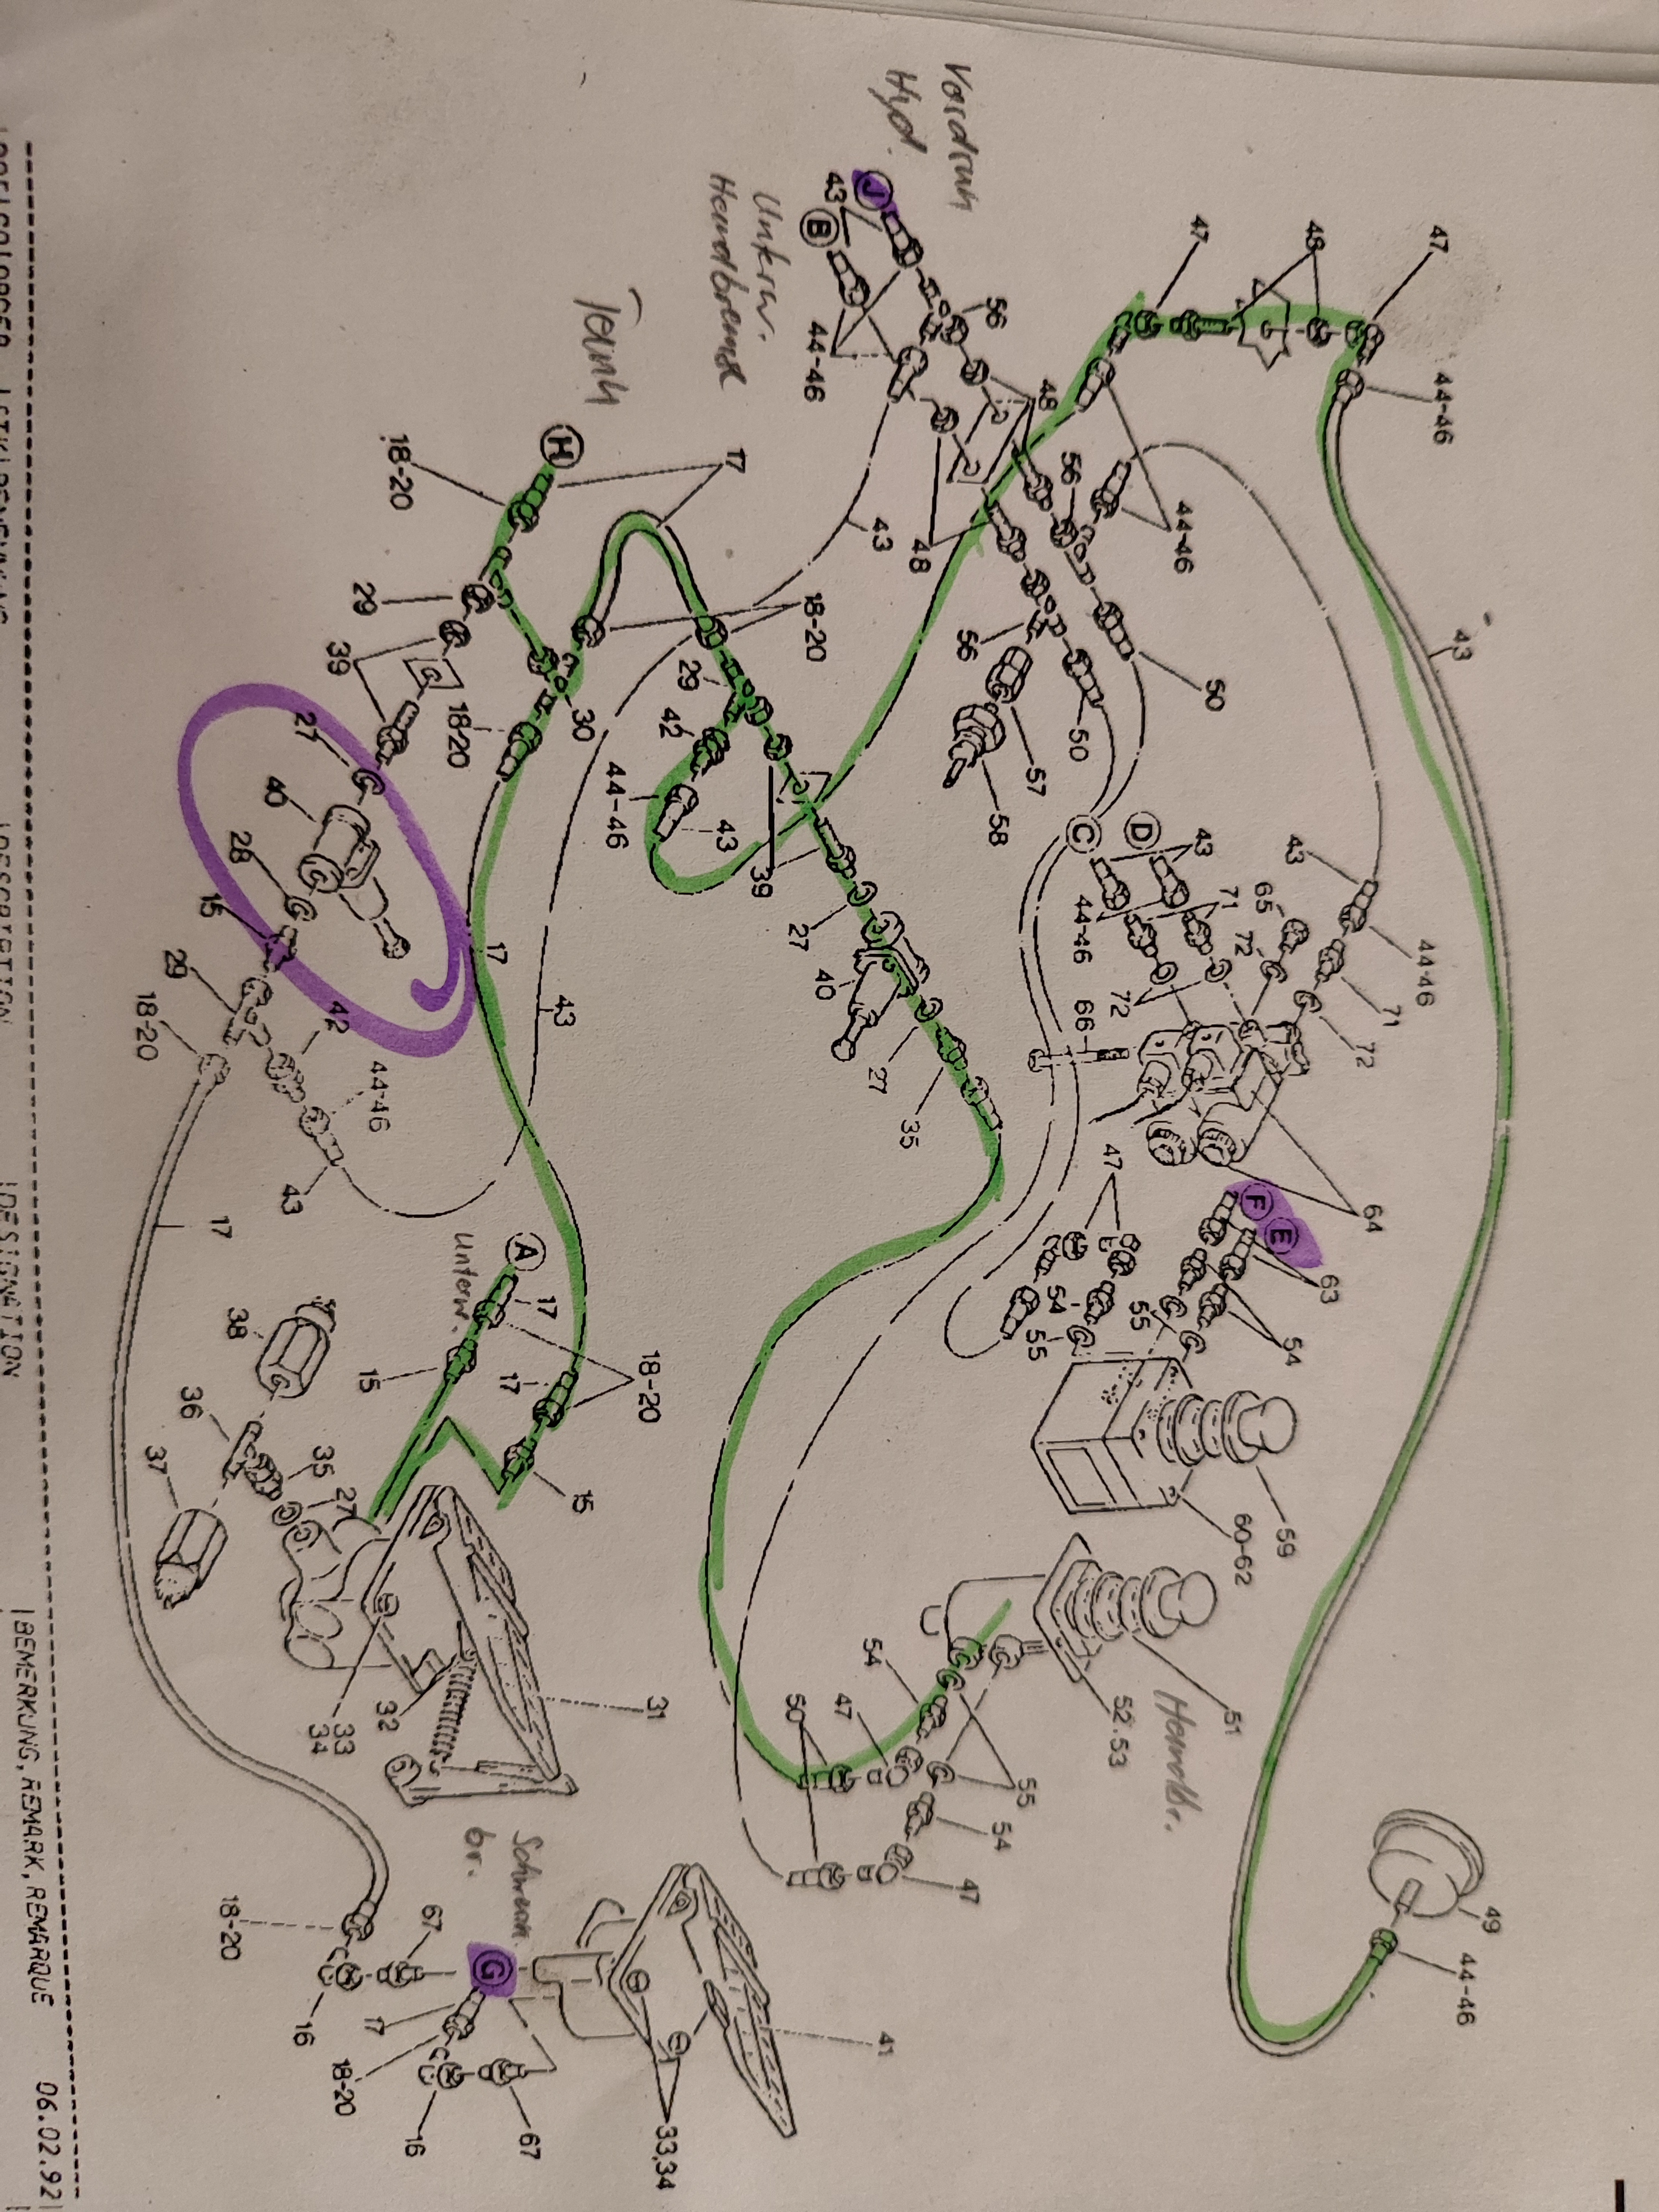 47
44-46
43
49
44-46
48
44-46
71
72
64
43
65
72
63
54
E
F
59
60-62
47
44-46
50
71
43
D
51
Handbr.
56
C
44-46
72
66
47
55
54
55
52.53
48
56
50
57
58
55
54
47
Hyd.
J
B
43
44-46
48
43
56
35
27
54
47
50
18-20
39
27
40
Handbremse
17
29
42
43
44-46
31
18-20
33,34
41
H
30
17
43
A
17
17
15
Unterw.
Schwen.
br.
G
67
18-20
29
39
18-20
15
32
33
34
67
16
17
18-20
27
40
28
15
42
44-46
43
35
27
16
29
18-20
17
38
36
37
18-20
BEMERKUNG, REMARK, REMARQUE
06.02.92
DESIGNATION